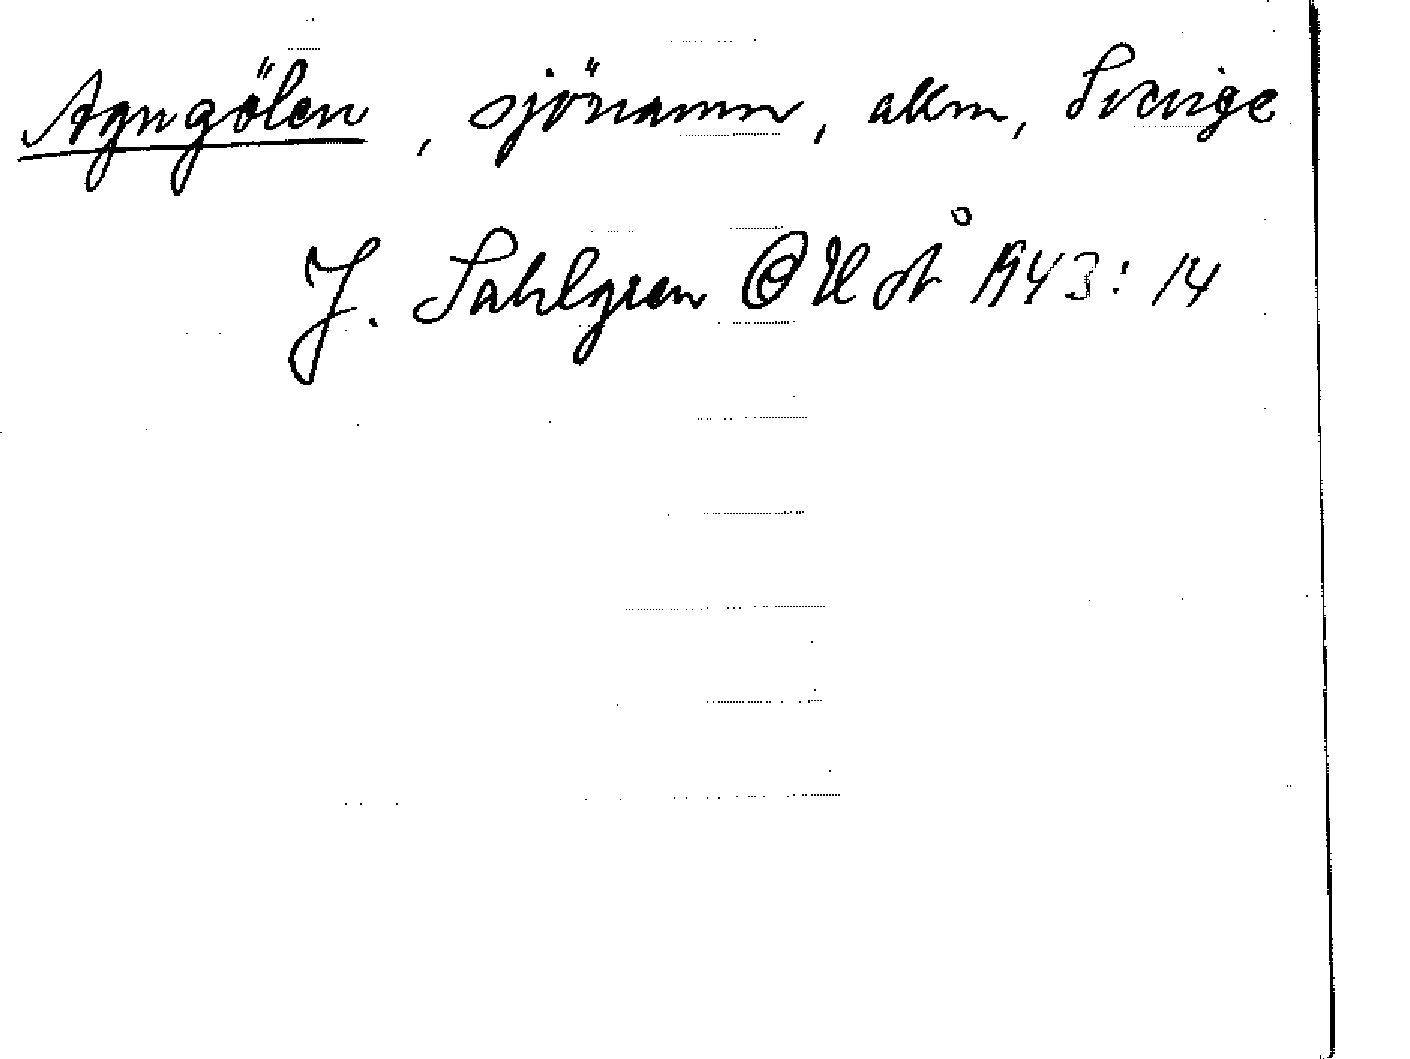 Agngölen, sjönamn, allm, Sverige
J. Sahlgren OUÅ 1943: 14